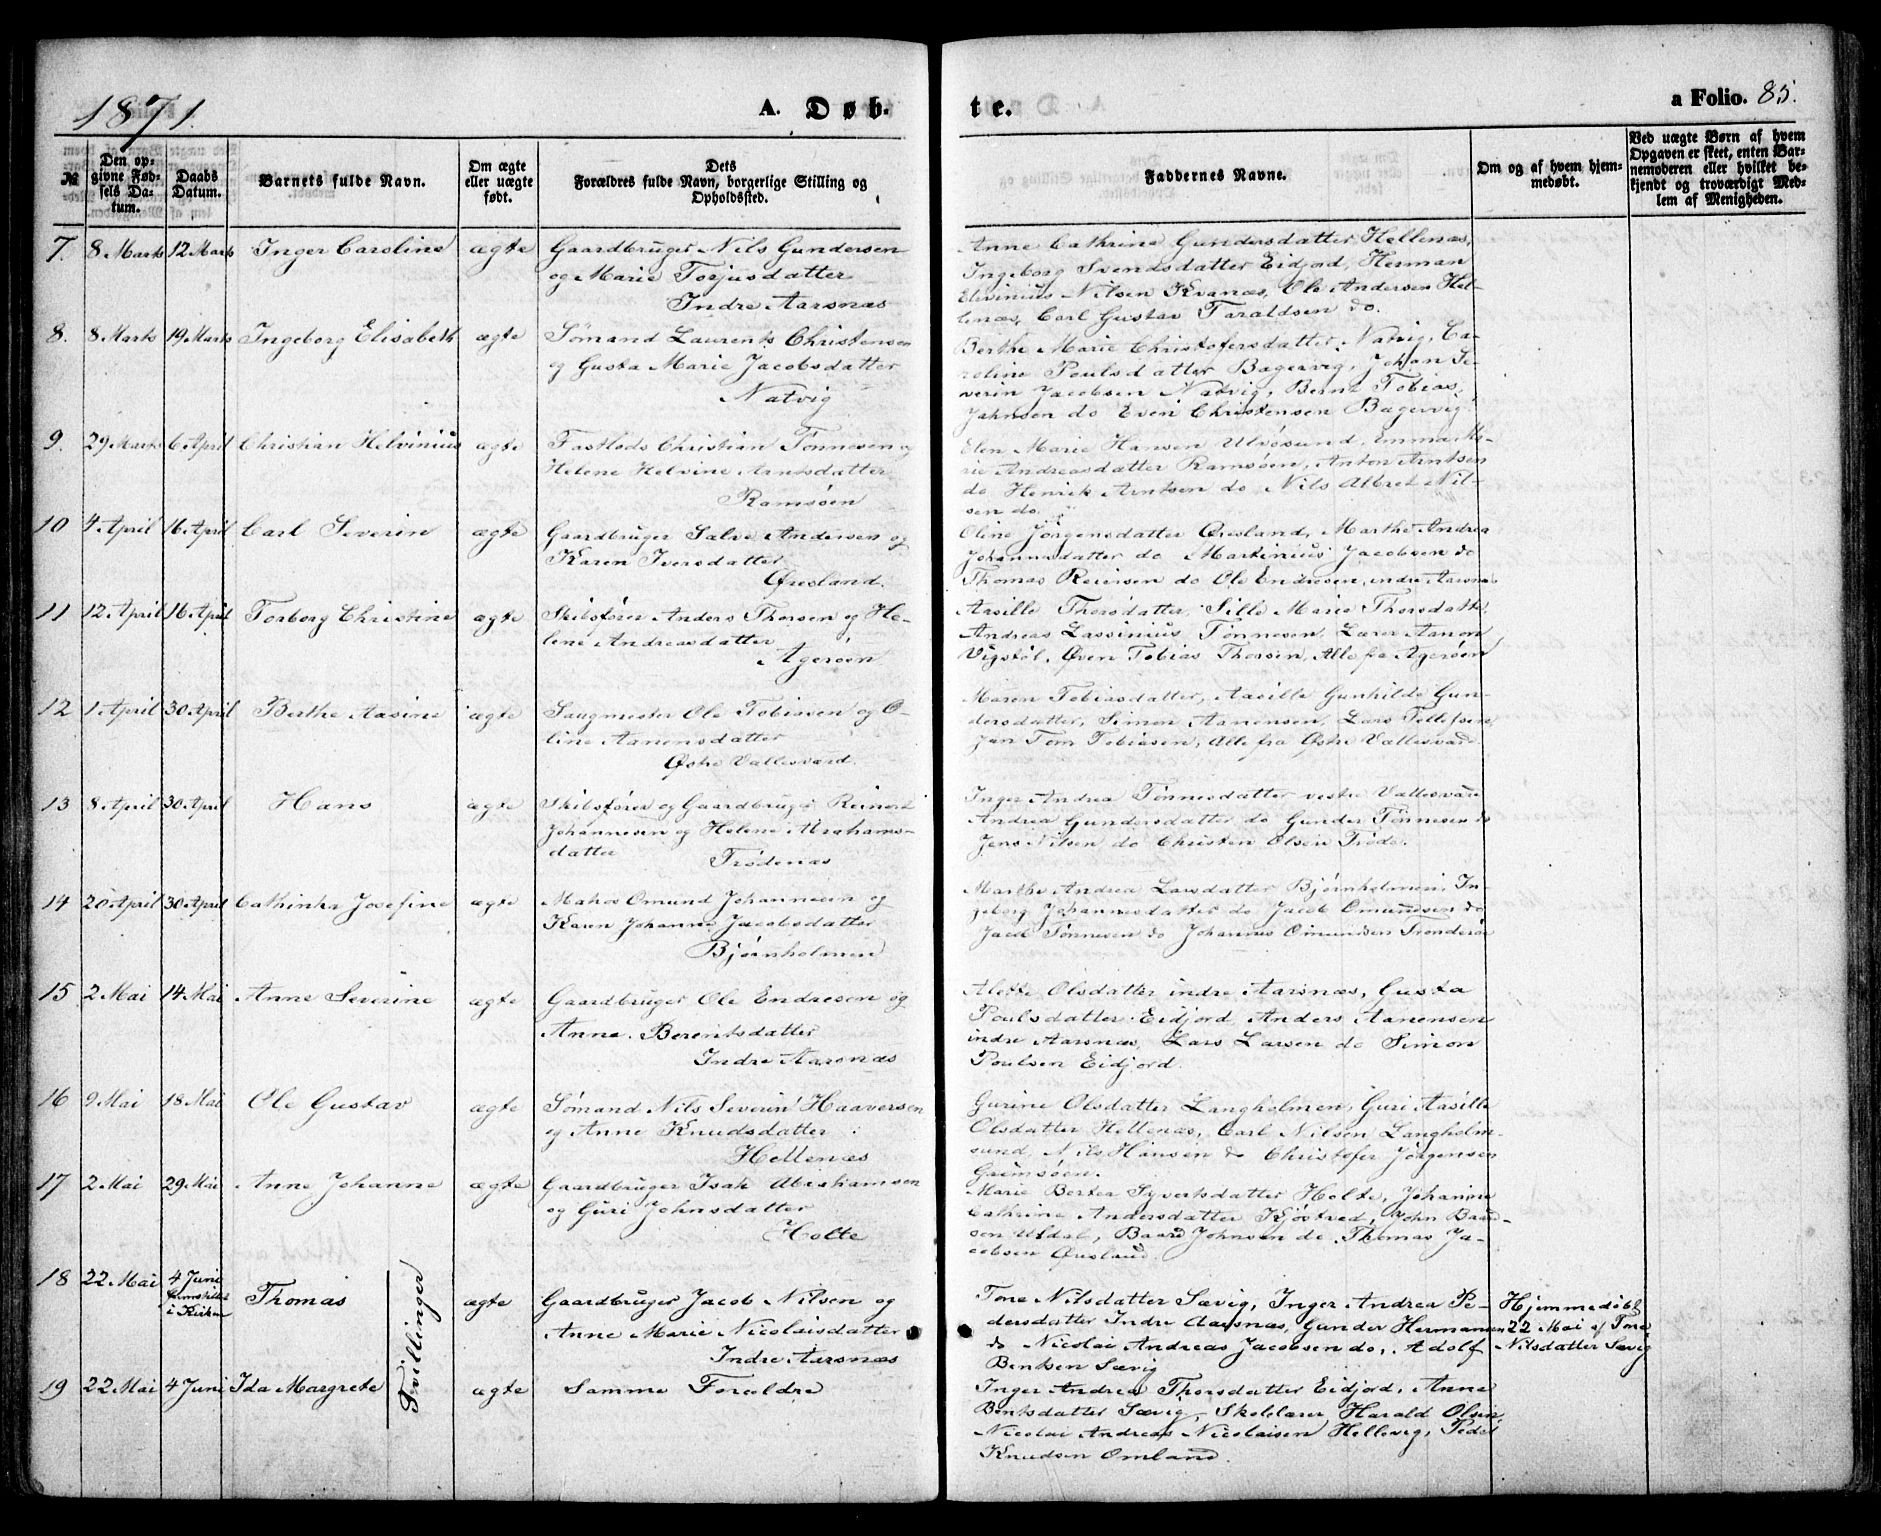 1871.
A. Døb-
te.
a Folio. 85.
№
Den opgivne Fødsels Datum.
Daabs Datum.
Barnets fulde Navn.
Om ægte eller uægte født.
Dets Forældres fulde Navn, borgerlige Stilling og Opholdssted.
Faddernes Navne.
Om og af hvem hjemmedøbt.
Ved uægte Børn af hvem Opgaven er skeet, enten Barnemoderen eller hvilket bekjendt og troværdigt Medlem af Menigheden.
7. 8 Marts 12 Marts Inger Caroline ægte Gaardbruger Nils Gundersen
og Marie Torjusdatter
Indre Aarsnæs
Anne Cathrine Gundersdatter Hellenæs,
Ingeborg Svendsdatter Eidjord, Herman
Elevinius Nilsen Kvanæs, Ole Andersen Hel-
lenæs, Carl Gustav Taraldsen do.
8. 8 Marts 19 Marts Ingeborg Elisabeth ægte Sømand Laurents Christensen
og Gusta Marie Jacobsdatter
Natvig
Berthe Marie Christofersdatter Natvig, Ca-
roline Poulsdatter Bagervig, Johan Se-
verin Jacobsen Natvig, Bernt Tobias
Jahnsen do Even Christensen Bagevvig
9. 29 Marts 6 April Christian Helvinius ægte Fastlods Christian Tønnesen og
Helene Helvine Arntsdatter
Ramsøen
Elen Marie Hansen Ulvøsund, Emma Ma-
rie Andreasdatter Ramsøen, Anton Arntsen
do Henrik Arntsen do Nils Albret Nil-
sen do.
10 4 April 16 April Carl Severin ægte Gaardbruger Salve Andersen og
Karen Iversdatter
Øresland.
Oline Jørgensdatter Øresland, Marthe Andrea
Johannesdatter do Martinius Jacobsen do
Thomas Reiersen do Ole Endresen, indre Aarsnæs
11 12 April 16 April Torborg Christine ægte Skibsfører Anders Thorsen og He-
lene Andreasdatter
Agerøen
Aasille Thorsdatter, Sille Marie Thorsdatter,
Andreas Lassinius Tønnesen, Lærer Aanon
Vigstøl, Øven Tobias Thorsen, Alle fra Agerøen
12 1 April 30 April Berthe Aasine ægte Saugmester Ole Tobiasen og O-
line Aanensdatter
Østre Vallesværd.
Maren Tobiasdatter, Aasille Gunhilde Gun-
dersdatter, Simon Aanensen, Lars Tellefsen,
Jan Tom Tobiasen, Alle fra Østre Vallesværd
13 8 April 30 April Hans ægte Skibsfører og Gaardbruger Reinert
Johannesen og Helene Abrahams-
datter
Trødenæs
Inger Andrea Tønnesdatter vestre Vallesværd
Andrea Gundersdatter do Gunder Tønnesen do
Jens Nilsen do Christen Olsen Trøde.
14 20 April 30 April Cathinka Josefine ægte Matros Omund Johannesen og
Karen Johanne Jacobsdatter
Bjørnholmen
Marthe Andrea Larsdatter Bjørnholmen, In-
geborg Johannesdatter do Jacob Omundsen do
Jacob Tønnesen do Johannes Omundsen
15 2 Mai 14 Mai Anne Severine ægte Gaardbruger Ole Endresen og
Anne Berentsdatter
Indre Aarsnæs
Alette Olsdatter indre Aarsnæs, Gusta
Poulsdatter Eidjord, Anders Aanensen
indre Aarsnæs, Lars Larsen do Simon
Poulsen Eidjord.
16 9 Mai 18 Mai Ole Gustav ægte Sømand Nils Severin Haaversen
og Anne Knudsdatter
Hellenæs
Gurine Olsdatter Langholmen, Guri Aasille
Olsdatter Hellenæs, Carl Nilsen Langholm-
sund, Nils Hansen do Christofer Jørgensen
Grimsøen.
17 2 Mai 29 Mai Anne Johanne ægte Gaardbruger Isak Abrahamsen
og Guri Johnsdatter
Holte
Marie Bertea Syvertsdatter Holte, Johanne
Cathrine Andersdatter Kjøstved, John Baard-
sen Uldal, Baard Johnsen do. Thomas Ja-
cobsen Øresland.
18 22 Mai 4 Juni
i Kirken
Thomas
Tvillinger
ægte Gaardbruger Jacob Nilsen og
Anne Marie Nicolaisdatter
Indre Aarsnæs
Tone Nilsdatter Sævig, Inger Andrea Pe-
dersdatter Indre Aarsnæs, Gunder Hermansen
do Nicolai Andreas Jacobsen do, Adolf
Bentsen Sævig
Hjemmedøbt
22 Mai af Tone
Nilsdatter Sævig
19 22 Mai 4 Juni Ida Margrete ægte Samme Forældre
Inger Andrea Thorsdatter Eidjord, Anne
Bentsdatter Sævig, Skolelærer Harald Olsen
Nicolai Andreas Nicolaisen Hellevig, Peder
Knudsen Omland.